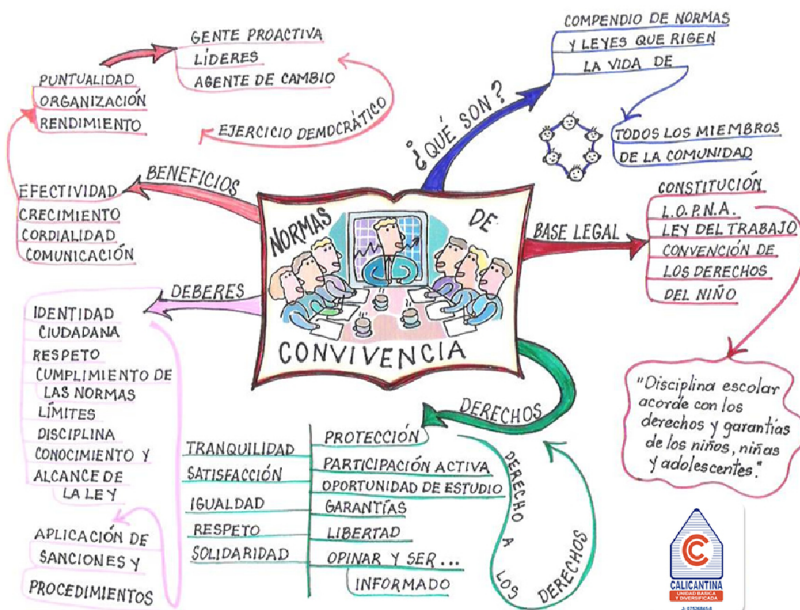 NORMAS
DE
CONVIVENCIA
¿QUÉ SON?
COMPENDIO DE NORMAS
Y LEYES QUE RIGEN
LA VIDA DE
TODOS LOS MIEMBROS
DE LA COMUNIDAD
BASE LEGAL
CONSTITUCIÓN
L.O.P.N.A.
LEY DEL TRABAJO
CONVENCIÓN DE
LOS DERECHOS
DEL NIÑO
"Disciplina escolar
acorde con los
derechos y garantías
de los niños, niñas
y adolescentes".
DERECHOS
PROTECCIÓN
PARTICIPACIÓN ACTIVA
OPORTUNIDAD DE ESTUDIO
GARANTÍAS
LIBERTAD
OPINAR Y SER...
INFORMADO
TRANQUILIDAD
SATISFACCIÓN
IGUALDAD
RESPETO
SOLIDARIDAD
DERECHO A LOS DERECHOS
DEBERES
IDENTIDAD
CIUDADANA
RESPETO
CUMPLIMIENTO DE
LAS NORMAS
LÍMITES
DISCIPLINA
CONOCIMIENTO Y
ALCANCE DE
LA LEY
APLICACIÓN DE
SANCIONES Y
PROCEDIMIENTOS
BENEFICIOS
EFECTIVIDAD
CRECIMIENTO
CORDIALIDAD
COMUNICACIÓN
PUNTUALIDAD
ORGANIZACIÓN
RENDIMIENTO
GENTE PROACTIVA
LÍDERES
AGENTE DE CAMBIO
EJERCICIO DEMOCRÁTICO
CALICANTINA
UNIDAD BÁSICA
Y DIVERSIFICADA